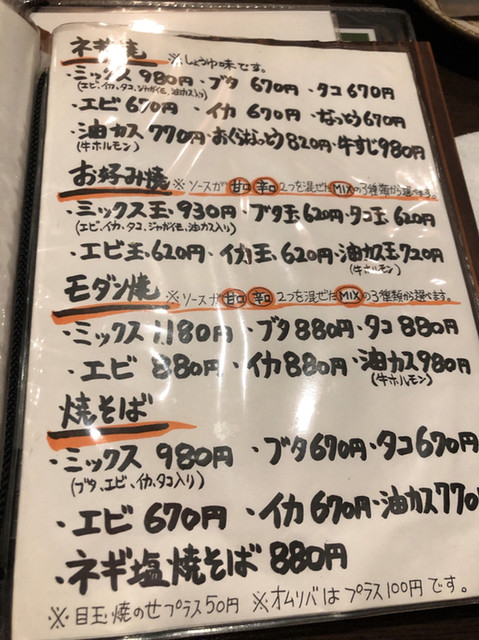 ネギ焼 ※しょうゆ味です。
・ミックス 980円・ブタ 670円・タコ670円
(エビ、イカ、タコ、ジャガイモ、油カス入り)
・エビ 670円 ・イカ 670円・なっとう670円
・油カス 770円・おくらなっとう820円・牛すじ980円
(牛ホルモン)
お好み焼 ※ソースが甘口辛口2つを混ぜたMIXの3種類から選べます。
・ミックス玉・930円・ブタ玉620円・タコ玉 620円
(エビ、イカ、タコ、ジャガイモ、油カス入り)
・エビ玉・620円・イカ玉・620円・油カス玉720円
(牛ホルモン)
モダン焼 ※ソースが甘口辛口2つを混ぜたMIXの3種類から選べます。
・ミックス 1180円・ブタ880円・タコ880円
・エビ 880円・イカ880円・油カス980円
(牛ホルモン)
焼そば
・ミックス 980円・ブタ670円・タコ670円
(ブタ、エビ、イカ、タコ入り)
・エビ 670円 ・イカ670円・油カス770円
・ネギ塩焼そば 880円
※目玉焼のせプラス50円 ※オムソバはプラス100円です。